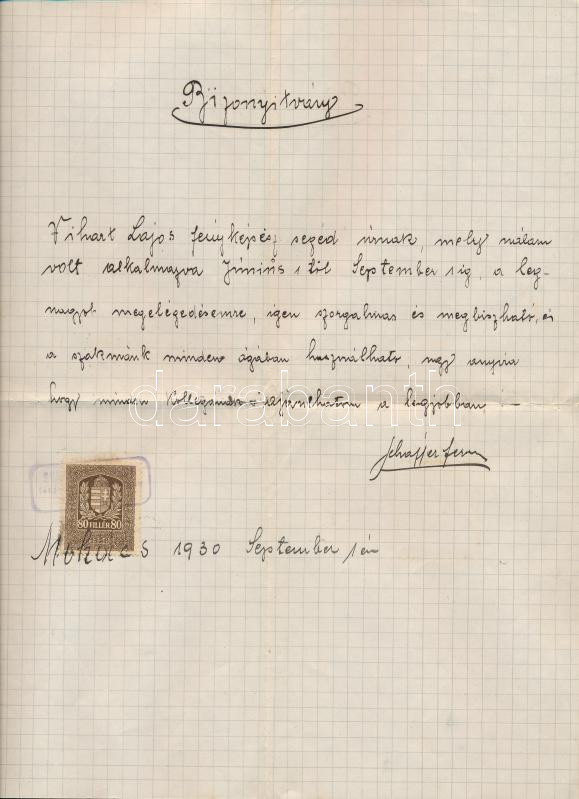 Bizonyitvány
Vihart Lajos fényképész seged úrnak, mely nálam
volt alkalmazva Június 1 től September 1 ig, a leg-
nagyobb megelégedésemre, igen szorgalmas és megbiszható, és
a szakmánk minden ágában használható, ugy anyira
hogy minden Kollégának ajánlhatom a legjobban
Schaffer
80 FILLÉR 80
Mohács 1930 September 1 én
darabanth